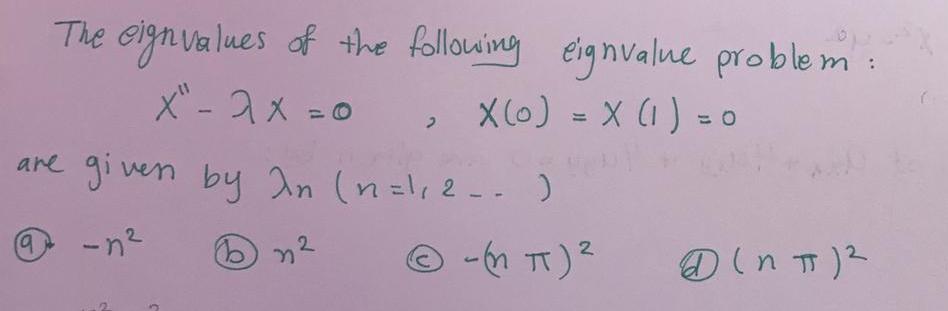 The eignvalues of the following eignvalue problem :
X'' - λX = 0 , X(0) = X(1) = 0
are given by λn (n=1, 2 - - )
ⓐ -n² ⓑ n² ⓒ -(n π)² ⓓ (n π)²